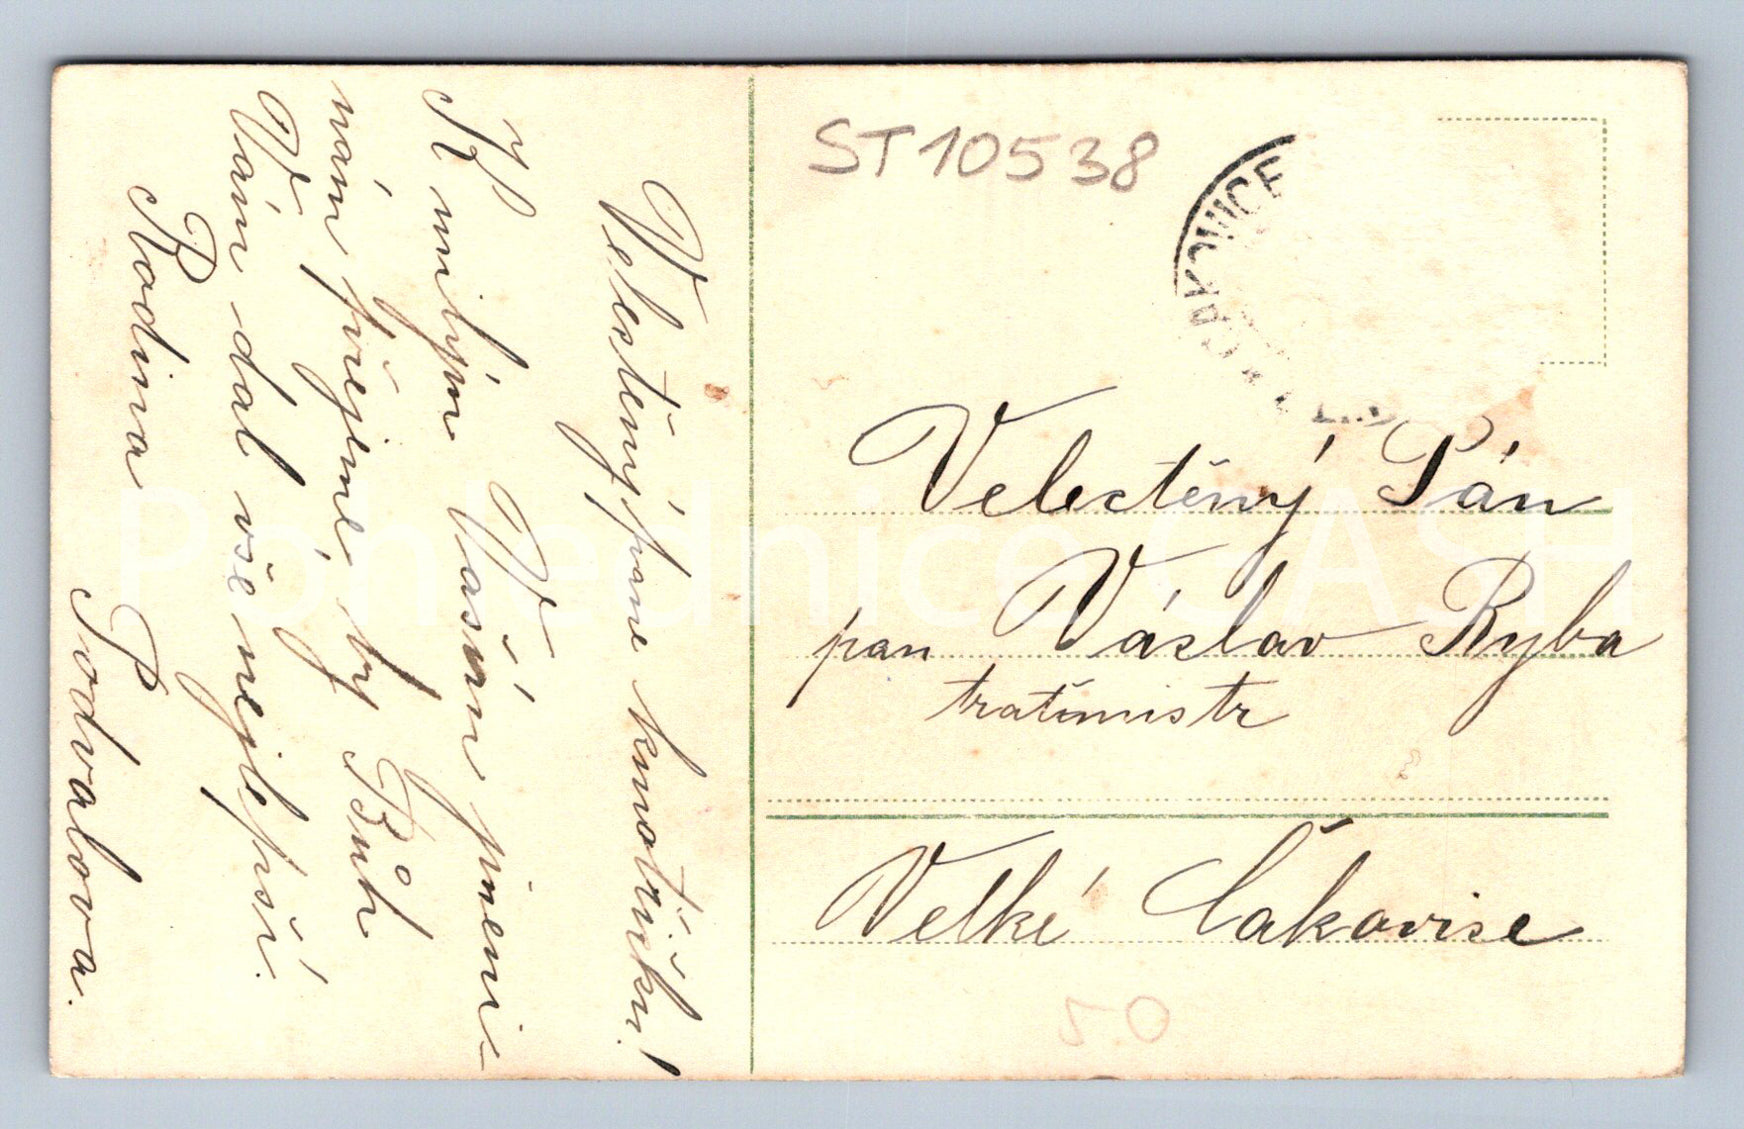 Velectěný pane kmotříčku!
K milým Vašim jmeni-
nám přejeme, by Bůh
Vám dal vše nejlepší.
Rodina
Podvalova.
ST10538
Velectěný Pán
pan Václav Ryba
traťmistr
Velké Čakovice
50
Pohlednice CASH